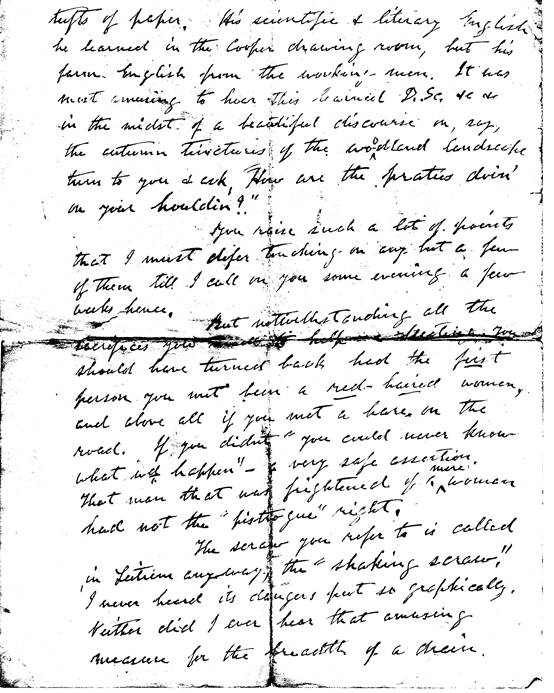 tufts of paper. His scientific & literary English
he learned in the Cooper drawing room, but his
farm English from the working-men. It was
most amusing to hear this learned D.Sc. &c &c
in the midst of a beautiful discourse on, say,
the autumn tinctures of the woodland landscape
turn to you & ask, "How are the praties doin'
on your houldin'?"
You raise such a lot of points
that I must defer touching on any but a few
of them till I call on you some evening a few
weeks hence.
But notwithstanding all the
sacrifices you to help election you
should have turned back had the first
person you met been a red-haired woman,
and above all if you met a hare on the
road. If you didn't "you could never know
what wd happen" - a very safe assertion.
That man that was frightened of a mere woman
had not the "pistrogue" right.
The scraw you refer to is called
in Leitrim anyway, the "shaking scraw."
I never heard its dangers put so graphically.
Neither did I ever hear that amusing
measure for the breadth of a drain.